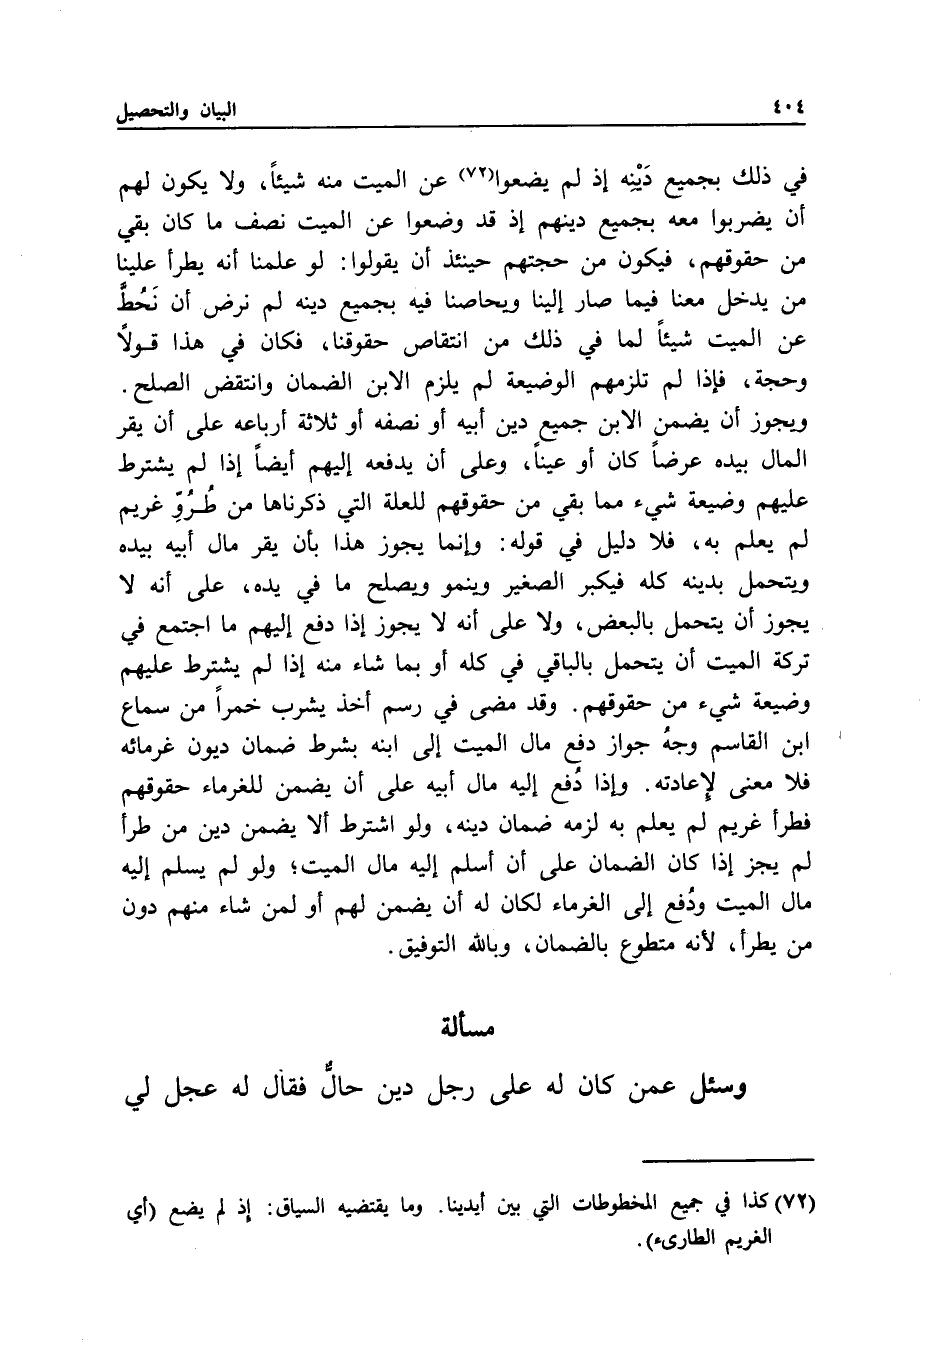 ٤٠٤ البيان والتحصيل
في ذلك بجميع دَيْنِه إذ لم يضعوا(٧٢) عن الميت منه شيئاً، ولا يكون لهم
أن يضربوا معه بجميع دينهم إذ قد وضعوا عن الميت نصف ما كان بقي
من حقوقهم، فيكون من حجتهم حينئذ أن يقولوا: لو علمنا أنه يطرأ علينا
من يدخل معنا فيما صار إلينا ويحاصنا فيه بجميع دينه لم نرض أن نَحُطَّ
عن الميت شيئاً لما في ذلك من انتقاص حقوقنا، فكان في هذا قـولاً
وحجة، فإذا لم تلزمهم الوضيعة لم يلزم الابن الضمان وانتقض الصلح.
ويجوز أن يضمن الابن جميع دين أبيه أو نصفه أو ثلاثة أرباعه على أن يقر
المال بيده عرضاً كان أو عيناً، وعلى أن يدفعه إليهم أيضاً إذا لم يشترط
عليهم وضيعة شيء مما بقي من حقوقهم للعلة التي ذكرناها من طُـرُوِّ غريم
لم يعلم به، فلا دليل في قوله: وإنما يجوز هذا بأن يقر مال أبيه بيده
ويتحمل بدينه كله فيكبر الصغير وينمو ويصلح ما في يده، على أنه لا
يجوز أن يتحمل بالبعض، ولا على أنه لا يجوز إذا دفع إليهم ما اجتمع في
تركة الميت أن يتحمل بالباقي في كله أو بما شاء منه إذا لم يشترط عليهم
وضيعة شيء من حقوقهم. وقد مضى في رسم أخذ يشرب خمراً من سماع
ابن القاسم وجهُ جواز دفع مال الميت إلى ابنه بشرط ضمان ديون غرمائه
فلا معنى لإعادته. وإذا دُفع إليه مال أبيه على أن يضمن للغرماء حقوقهم
فطرأ غريم لم يعلم به لزمه ضمان دينه، ولو اشترط ألا يضمن دين من طرأ
لم يجز إذا كان الضمان على أن أسلم إليه مال الميت؛ ولو لم يسلم إليه
مال الميت ودُفع إلى الغرماء لكان له أن يضمن لهم أو لمن شاء منهم دون
من يطرأ، لأنه متطوع بالضمان، وبالله التوفيق.
مسألة
وسئل عمن كان له على رجل دين حالٌّ فقال له عجل لي
(٧٢) كذا في جميع المخطوطات التي بين أيدينا. وما يقتضيه السياق: إذ لم يضع (أي
الغريم الطارىء).